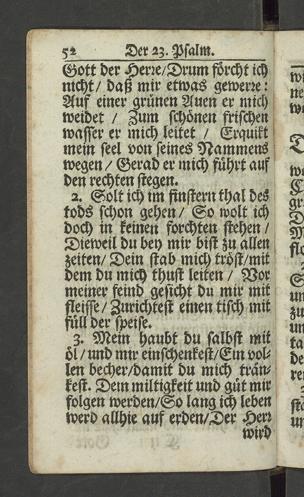 52 Der 23. Psalm.
Gott der Herre/Drum förcht ich
nicht/ daß mir etwas gewerre:
Auf einer grünen Auen er mich
weidet / Zum schönen frischen
wasser er mich leitet / Erquikt
mein seel von seines Nammens
wegen / Gerad er mich führt auf
den rechten stegen.
2. Solt ich im finstern thal des
tods schon gehen/ So wolt ich
doch in keinen forchten stehen/
Dieweil du bey mir bist zu allen
zeiten/ Dein stab mich tröst/mit
dem du mich thust leiten / Vor
meiner feind gesicht du mir mit
fleisse/ Zurichtest einen tisch mit
füll der speise.
3. Mein haubt du salbst mit
öl/und mir einschenkest/Ein vol-
len becher/damit du mich trän-
kest. Dein miltigkeit und güt mir
folgen werden/So lang ich leben
werd allhie auf erden/Der Herr
wird